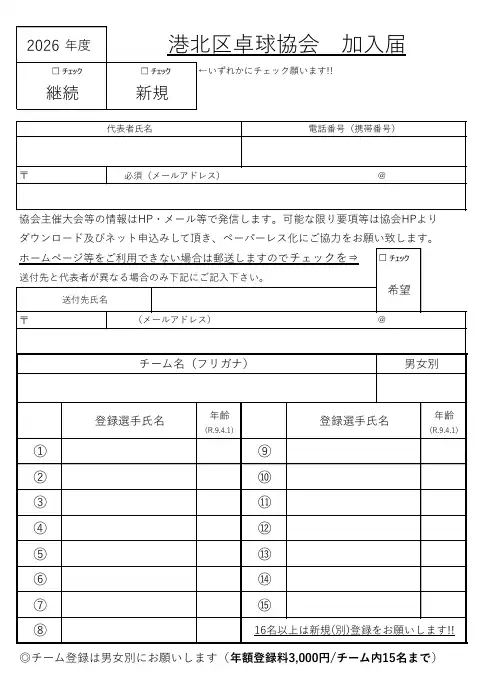 2026 年度
港北区卓球協会　加入届
□ ﾁｪｯｸ
□ ﾁｪｯｸ
←いずれかにチェック願います!!
継続
新規
代表者氏名
電話番号（携帯番号）
〒
必須（メールアドレス）
＠
協会主催大会等の情報はHP・メール等で発信します。可能な限り要項等は協会HPより
ダウンロード及びネット申込みして頂き、ペーパーレス化にご協力をお願い致します。
ホームページ等をご利用できない場合は郵送しますのでチェックを⇒
□ ﾁｪｯｸ
希望
送付先と代表者が異なる場合のみ下記にご記入下さい。
送付先氏名
〒
（メールアドレス）
＠
チーム名（フリガナ）
男女別
登録選手氏名
年齢
(R.9.4.1)
登録選手氏名
年齢
(R.9.4.1)
①
⑨
②
⑩
③
⑪
④
⑫
⑤
⑬
⑥
⑭
⑦
⑮
⑧
16名以上は新規(別)登録をお願いします!!
◎チーム登録は男女別にお願いします（年額登録料3,000円/チーム内15名まで）